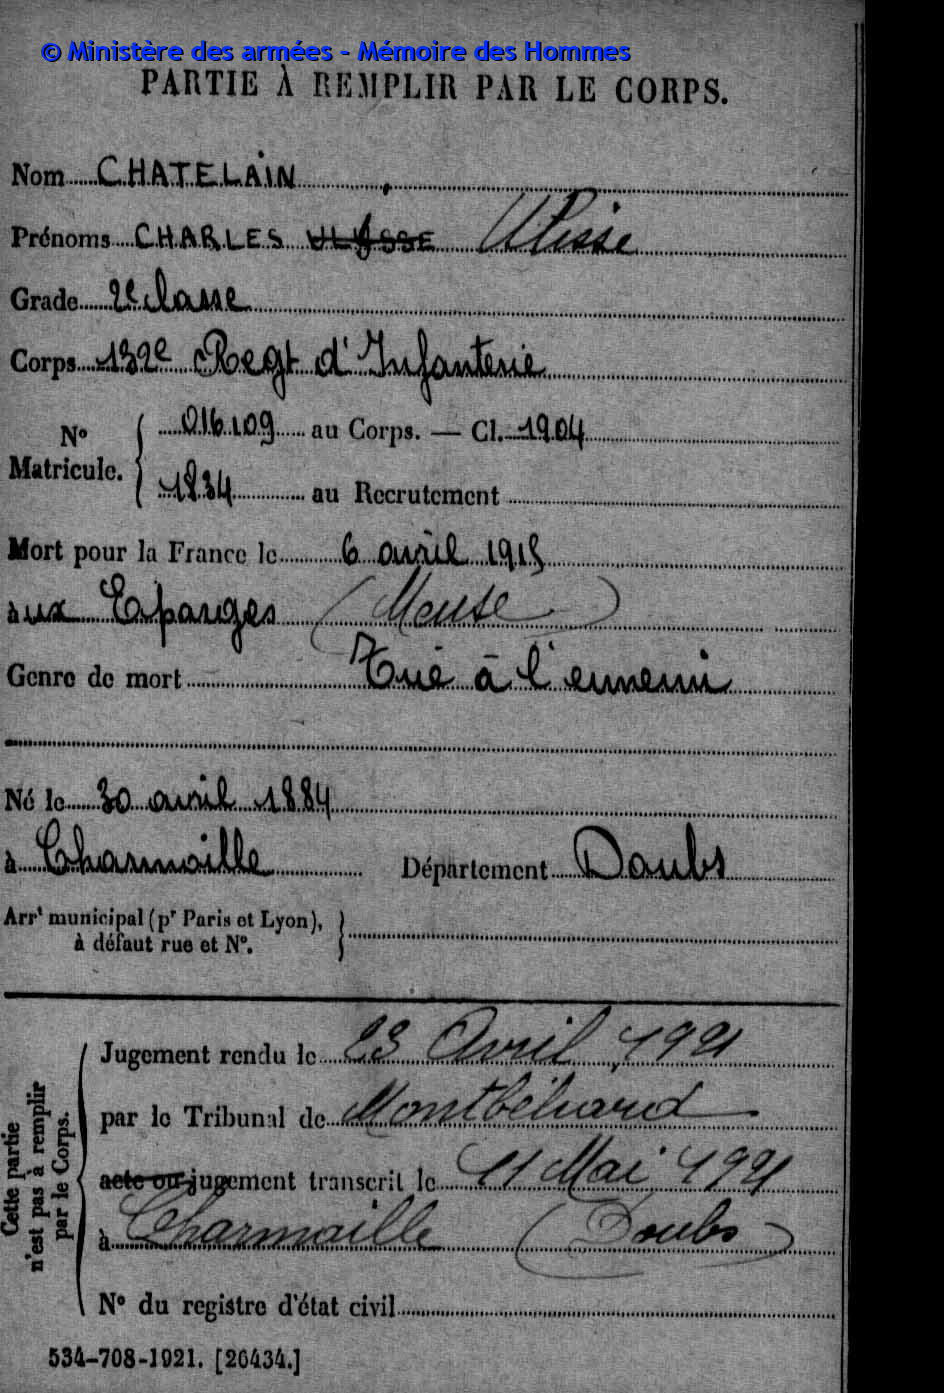 © Ministère des armées - Mémoire des Hommes
PARTIE À REMPLIR PAR LE CORPS.
Nom CHATELAIN
Prénoms CHARLES ULYSSE Ulisse
Grade 2e classe
Corps 132e Regt d'Infanterie
N° Matricule. 016109 au Corps. — Cl. 1904
1834 au Recrutement
Mort pour la France le 6 avril 1915
à ux Eparges (Meuse)
Genre de mort Tué à l'ennemi
Né le 30 avril 1884
à Charmoille Département Doubs
Arrt municipal (pr Paris et Lyon),
à défaut rue et N°.
Cette partie
n'est pas à remplir
par le Corps.
Jugement rendu le 23 Avril 1921
par le Tribunal de Montbéliard
acte ou jugement transcrit le 11 Mai 1921
à Charmoille (Doubs)
N° du registre d'état civil
534-708-1921. [26434.]